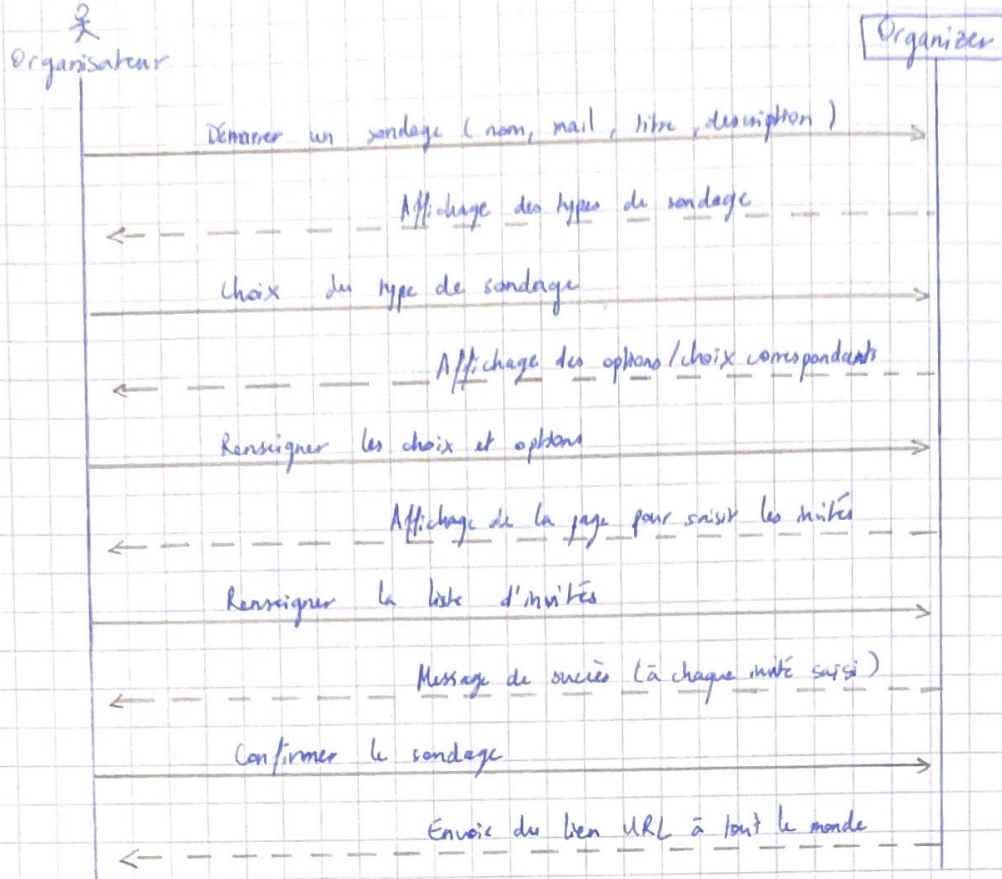 Organisateur
Organizer
Démarrer un sondage (nom, mail, titre, description)
Affichage des types de sondage
Choix du type de sondage
Affichage des options/choix correspondants
Renseigner les choix et options
Affichage de la page pour saisir les invités
Renseigner la liste d'invités
Message de succès (à chaque invité saisi)
Confirmer le sondage
Envoie du lien URL à tout le monde